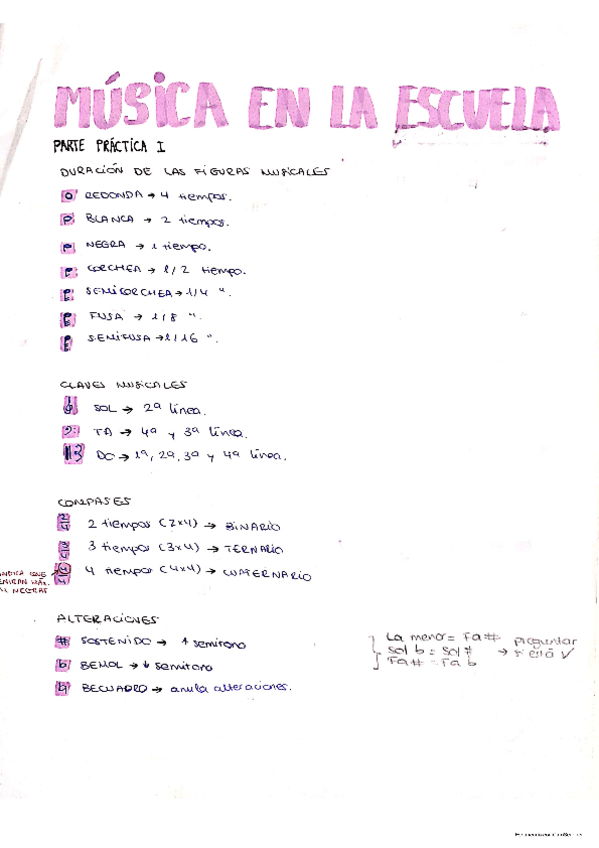 MÚSICA EN LA ESCUELA
PARTE PRÁCTICA I
DURACIÓN DE LAS FIGURAS MUSICALES
REDONDA → 4 tiempos.
BLANCA → 2 tiempos.
NEGRA → 1 tiempo.
CORCHEA → 1/2 tiempo.
SEMICORCHEA → 1/4 ".
FUSA → 1/8 ".
SEMIFUSA → 1/16 ".
CLAVES MUSICALES
SOL → 2ª línea.
FA → 4ª y 3ª línea.
DO → 1ª, 2ª, 3ª y 4ª línea.
COMPASES
2 tiempos (2x4) → BINARIO
3 tiempos (3x4) → TERNARIO
4 tiempos (4x4) → CUATERNARIO
INDICA QUE
NEGRAS
ALTERACIONES
# SOSTENIDO → ↑ semitono
b BEMOL → ↓ semitono
♮ BECUADRO → anula alteraciones.
La menor = Fa# preguntar
Sol b = Sol # → si está ✓
Fa# = Fa b